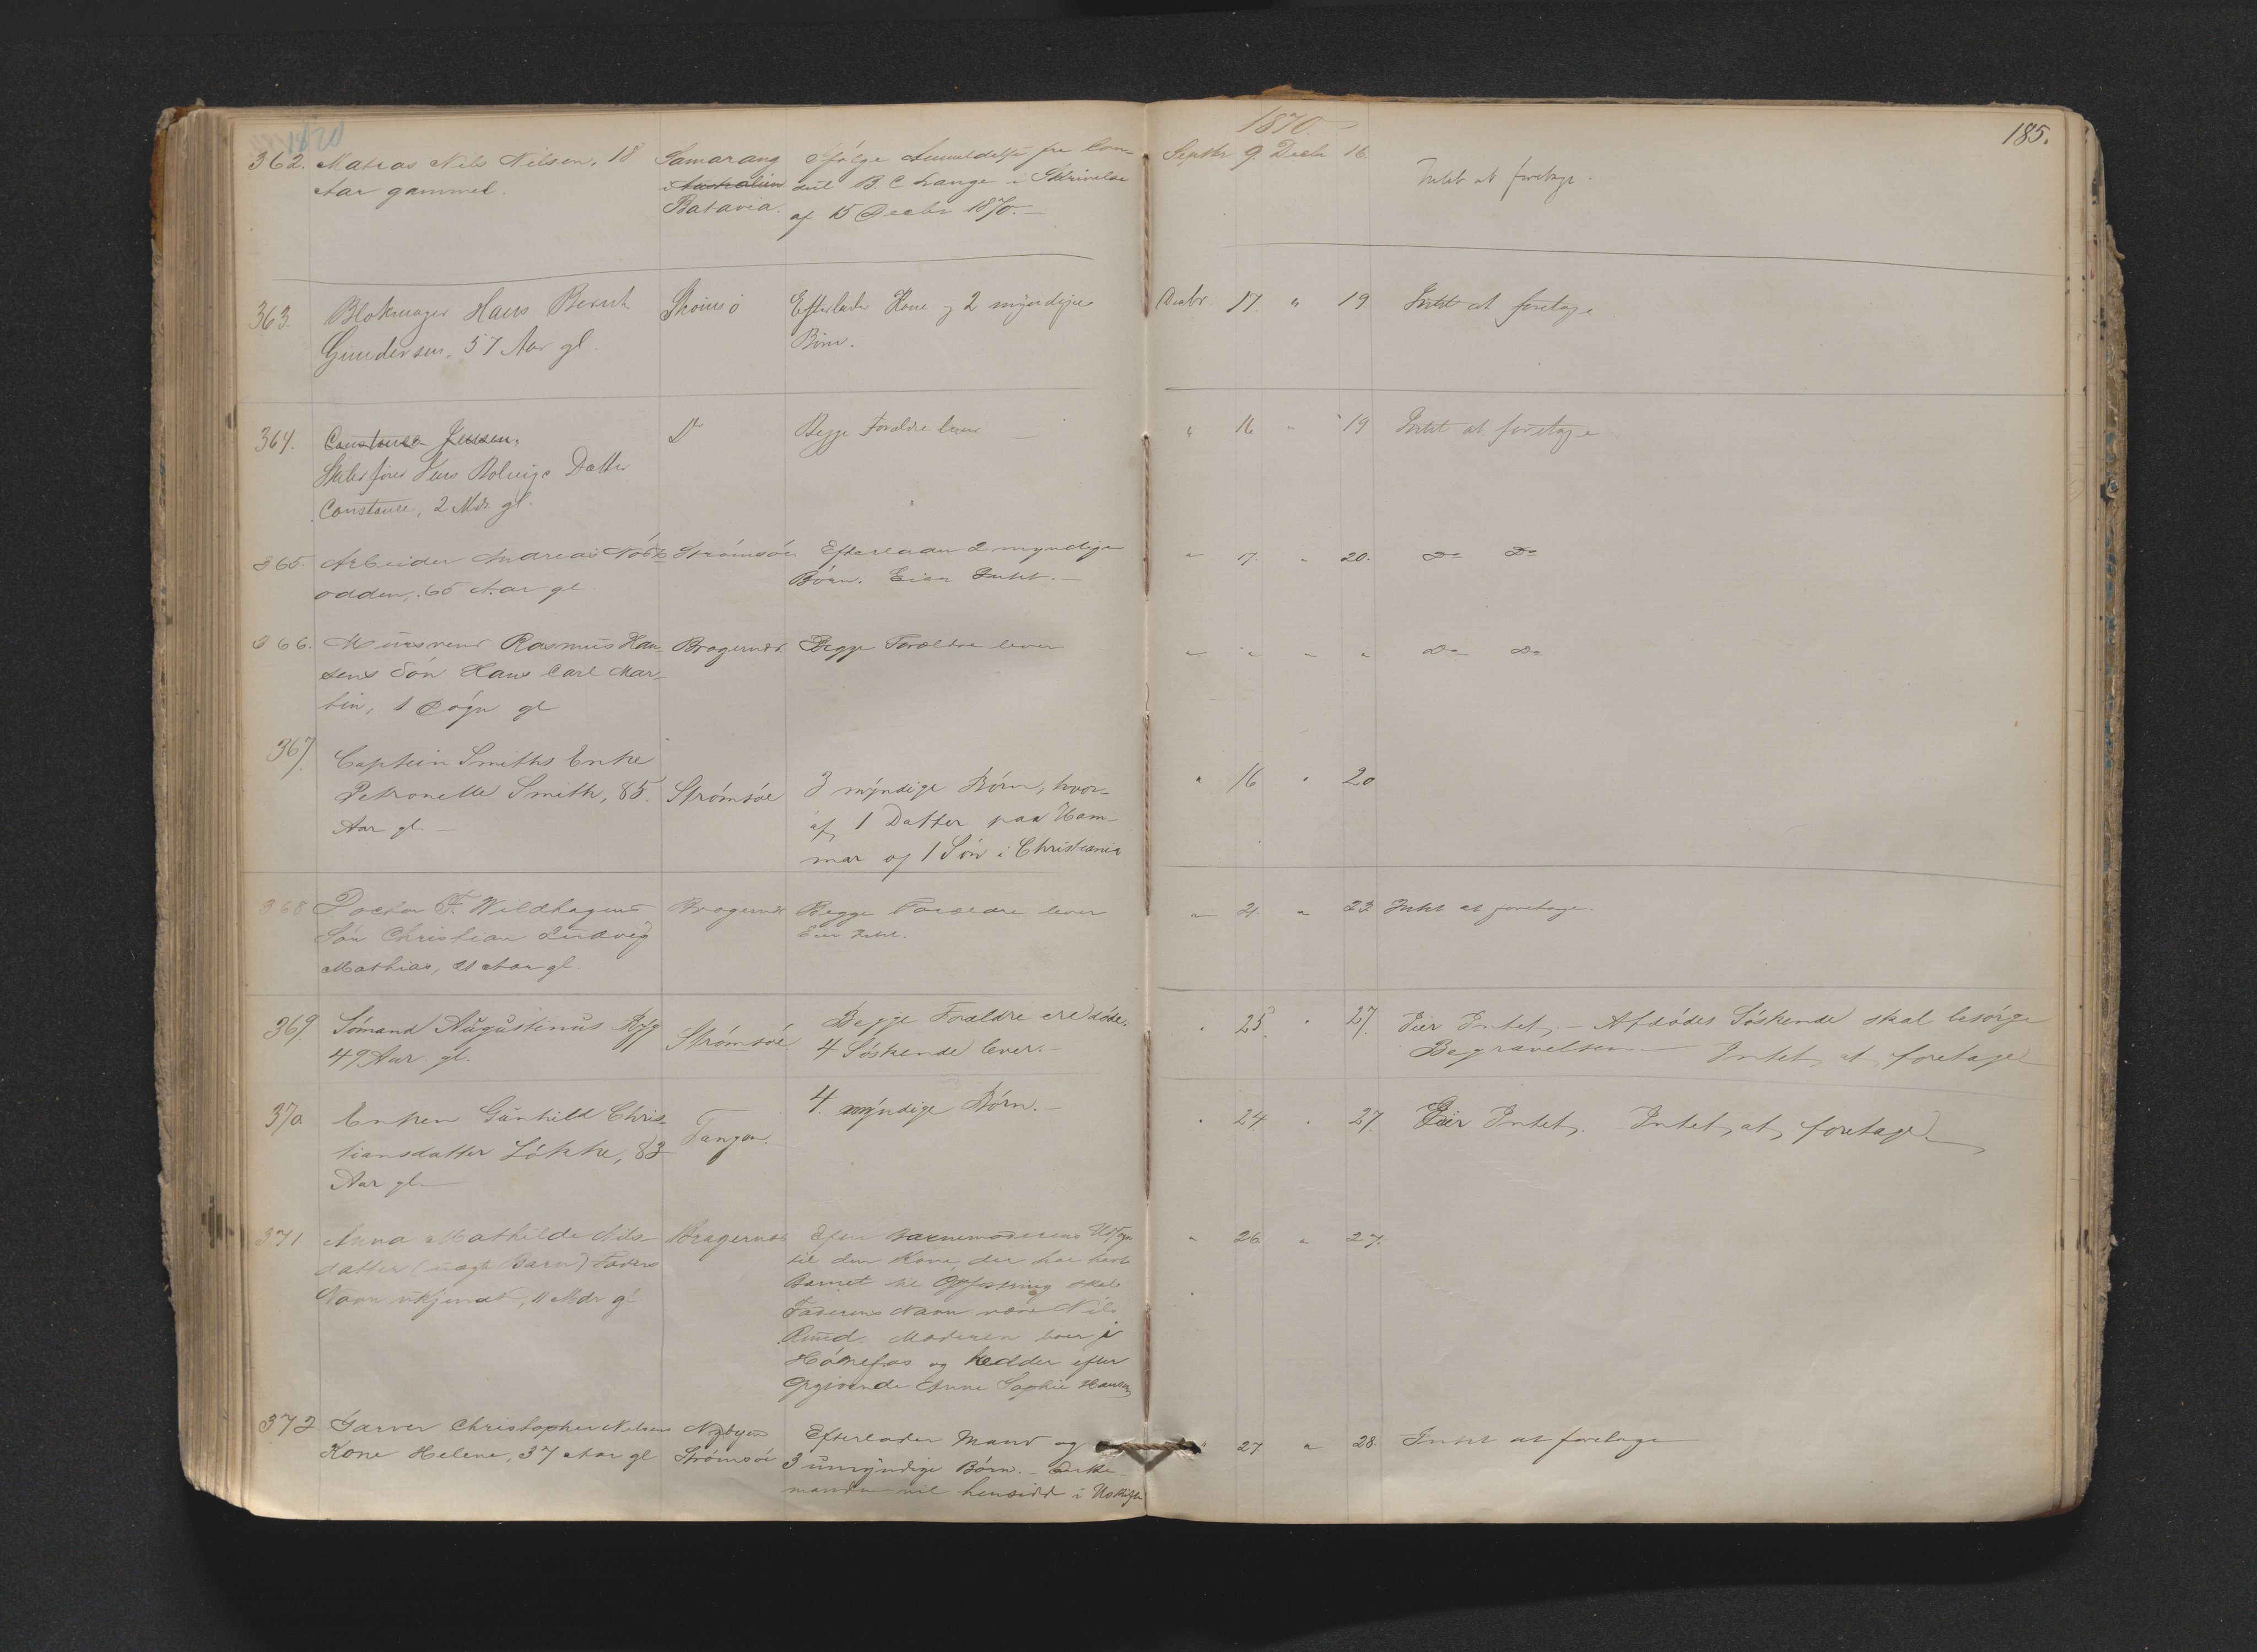 1870.
185.
362. Matros Nils Nilsen, 18 Samarang Ifølge Anmeldelse fra Con- Septbr 9. Decbr 16. Intet at foretage.
Aar gammel. i Australien sul B. C. Lange i Skrivelse
Batavia. af 15 Decbr 1870.—
363. Blokmager Hans Bernt Strømsø Efterlader Kone og 2 myndige Decbr. 17. " 19 Intet at foretage
Gundersen, 57 Aar gl. Børn.
364. Constance Jensen, Do Begge Forældre lever — " 16 " 19 Intet at foretage
Datter
Constance, 2 Mdr. gl.
365. Arbeider Andreas Strømsøe. Efterlader 2 myndige " 17. " 20. Do Do
odden, 65 Aar gl. Børn. Eier Intet.—
366. Muursvend Rasmus Han- Bragernæs Begge Forældre lever " " " " Do Do
sens Søn Hans Carl Mar-
tin, 1 Døgn gl
367. Captein Smiths Enke
Petronelle Smith, 85. Strømsøe 3 myndige Børn, hvor- " 16 " 20
Aar gl.— af 1 Datter paa Ham-
mar og 1 Søn i Christiania
368 Doctor F. Wildhagens Bragernæs Begge Forældre lever " 21. " 23 Intet at foretage.
Søn Christian Ludvig Eier Intet.
Mathias, 21 Aar gl.
369. Sømand Augustinus Ryg Strømsøe Begge Forældre ere døde. " 25. " 27. Eier Intet.— Afdødes Søskende skal besørge
49 Aar gl. 4 Søskende lever.— Begravelsen — Intet at foretage
370 Enken Gunhild Chris- Tangen. 4. myndige Børn.— " 24 " 27. Eier Intet. Intet at foretage
tiansdatter Løkke, 83
Aar gl.—
371 Anna Mathilde Nils- Bragernæs Efter Barnemoderens Udsagn " 26 " 27.
datter (uægte Barn) Faders til den Kone, der har havt
Navn ukjendt, 11 Mdr gl Barnet til Opfostring skal
Faderens Navn være Nils
Ruud. Moderen boer i
Hønefos og hedder efter
Opgivende Anne Sophie Hansen
372 Garver Christopher Nilsens Nybyen Efterlader Mand og " 27 " 28. Intet at foretage
Kone Helene, 37 Aar gl Strømsøe 3 umyndige Børn.— Enke-
manden vil hensidde i Uskiftet